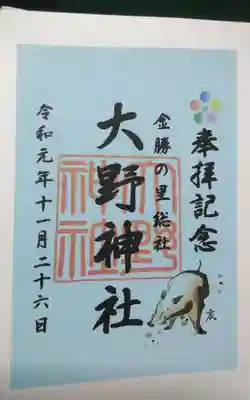 奉拝記念
亥
金勝の里総社
大野神社
大野
神社
令和元年十一月二十六日